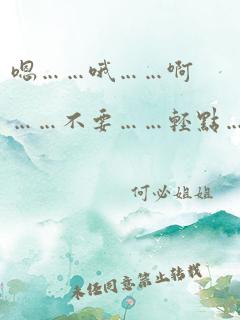 嗯……哦……啊
……不要……輕點…
何必姐姐
未经同意禁止转载